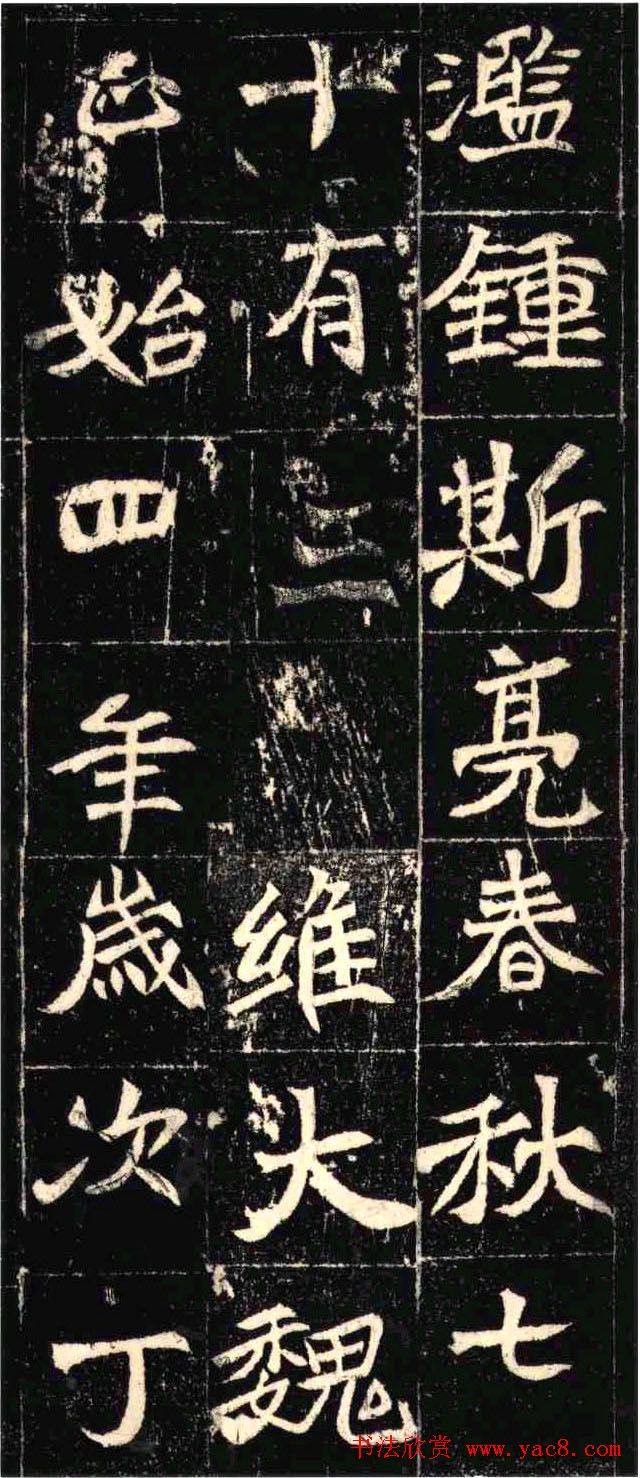 濫鍾斯亮春秋七
十有三維大魏
正始四年歲次丁
书法欣赏 www.yac8.com